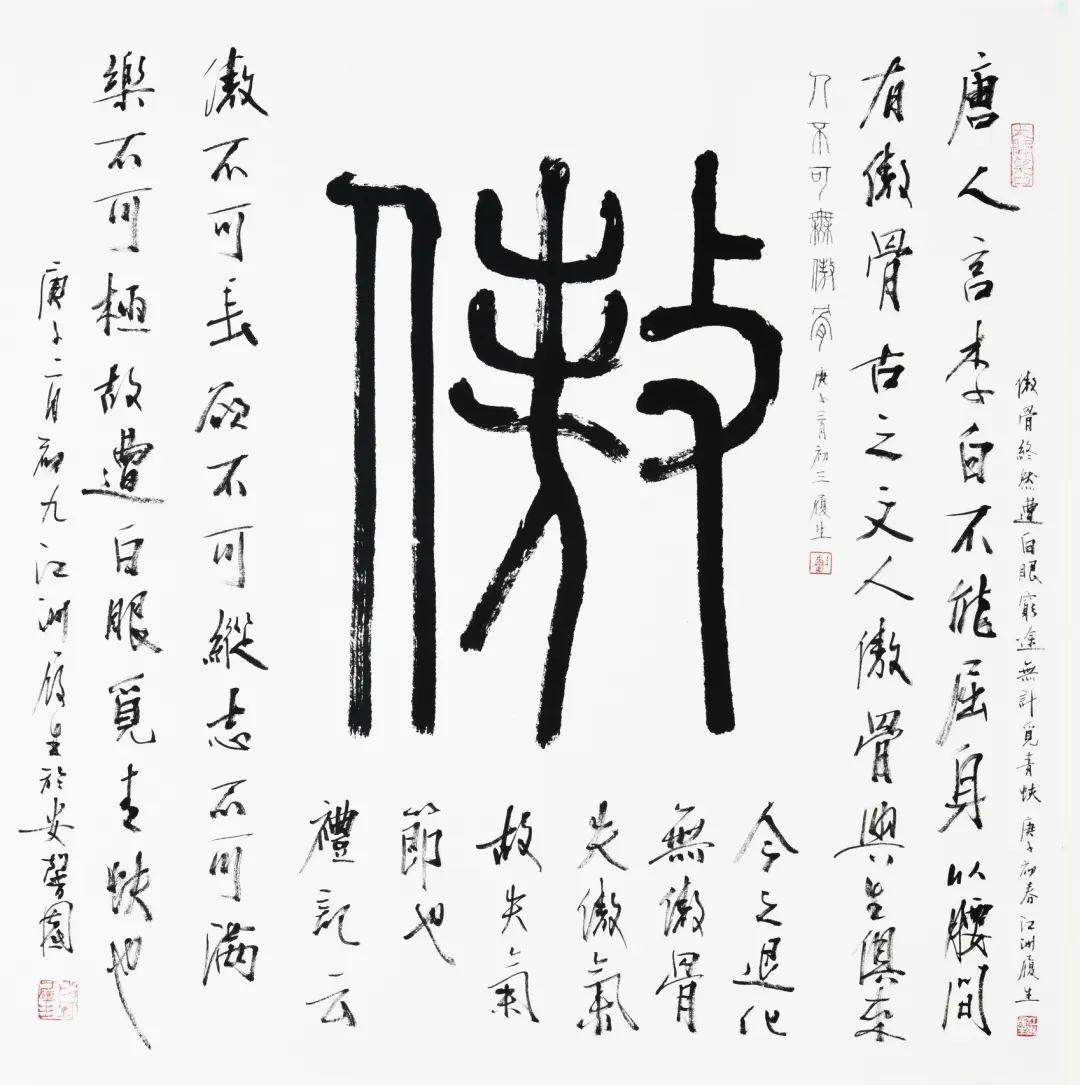 傲
唐人言李白不能屈身以腰間
有傲骨古之文人傲骨與生俱來
今之退化
無傲骨
失傲氣
故失氣
節也
禮記云
傲不可長欲不可縱志不可滿
樂不可極故遭白眼覓青蚨也
庚子二月初九江洲履生於安馨園
人不可無傲骨
庚子二月初三履生
傲骨終然遭白眼窮途無計覓青蚨庚子初春江洲履生